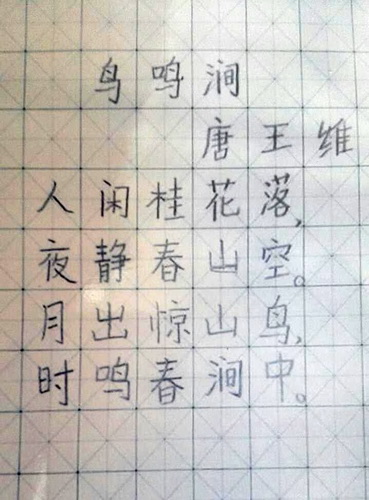 鸟鸣涧
唐 王维
人闲桂花落,
夜静春山空。
月出惊山鸟,
时鸣春涧中。